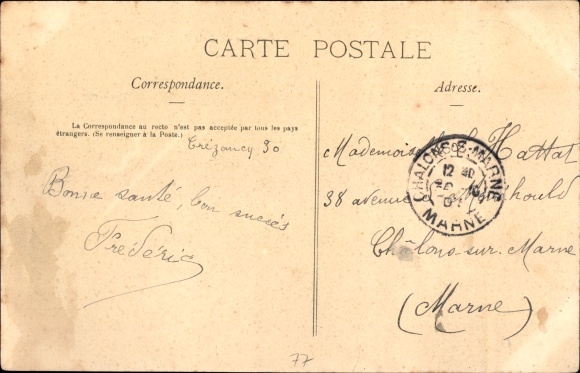 CARTE POSTALE
Correspondance.
Adresse.
La Correspondance au recto n'est pas acceptée par tous les pays
étrangers. (Se renseigner à la Poste.)
Crézancy 30
Bonne santé, bon succès
Frédéric
Mademoiselle Hattat
38 avenue
Châlons-sur-Marne
(Marne)
CHALONS-S-MARNE
12
MARNE
77